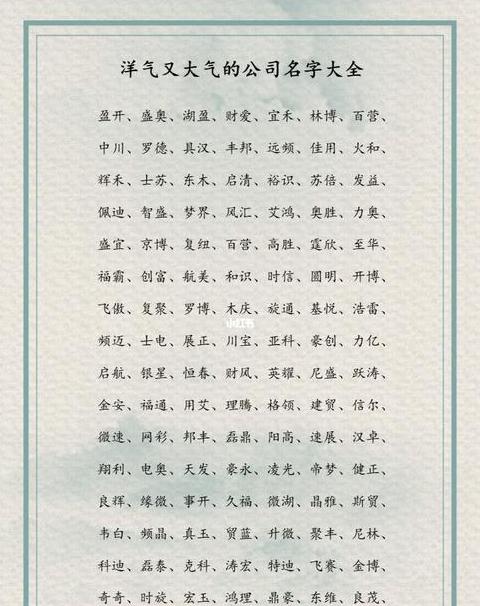 洋气又大气的公司名字大全
盈开、盛奥、湖盈、财爱、宜禾、林博、百营、
中川、罗德、具汉、丰邦、远频、佳用、火和、
辉禾、士苏、东木、启清、裕识、苏倍、发益、
佩迪、智盛、梦界、风汇、艾鸿、奥胜、力奥、
盛宜、京博、复纽、百营、高胜、霆欣、至华、
福霸、创富、航美、和识、时信、圆明、开博、
飞傲、复聚、罗博、木庆、旋通、基悦、浩雷、
小红书
频迈、士电、展正、川宝、亚科、豪创、力亿、
启航、银星、恒春、财风、英耀、尼盛、跃涛、
金安、福通、用艾、理腾、格领、建贸、信尔、
微速、网彩、邦丰、磊鼎、阳高、速展、汉卓、
翔利、电奥、天发、豪永、凌光、帝梦、健正、
良辉、缘微、事开、久福、微湖、晶雅、斯贸、
韦白、频晶、真玉、贸蓝、升微、聚丰、尼林、
科迪、磊泰、克科、涛宏、特迪、飞赛、金博、
奇奇、时旋、宏玉、鸿理、鼎豪、东维、良茂、